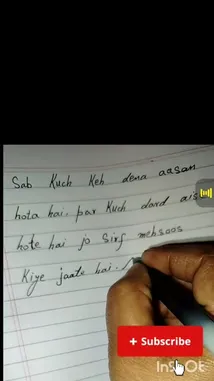 Sab Kuch Keh dena aasan
hota hai. par Kuch dard ais
hote hai jo Sirf mehsoos
Kiye jaate hai.
+ Subscribe
InShOt